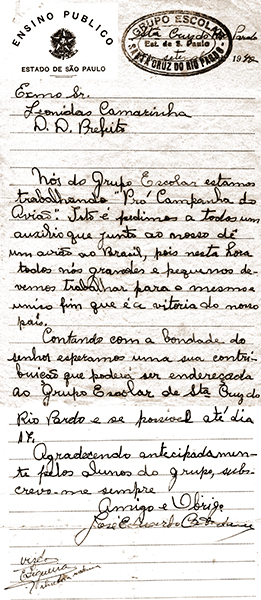 ENSINO PUBLICO
ESTADO DE SÃO PAULO
GRUPO ESCOLAR
Est. de S. Paulo
SANTA CRUZ DO RIO PARDO
Sta Cruz do Rio Pardo
194
Exmo Sr.
Leonidas Camarinha
D. D. Prefeito
Nós do Grupo Escolar estamos
trabalhando "Pro Campanha do
Avião". Isto é pedimos a todos um
auxilio que junto ao nosso dê
um avião ao Brasil, pois nesta hora
todos nós grandes e pequenos de-
vemos trabalhar para o mesmo e
unico fim que é a vitoria do nosso
país.
Contando com a bondade do
senhor esperamos uma sua contri-
buição que poderá ser endereçada
ao Grupo Escolar de Sta Cruz do
Rio Pardo e se possivel até dia
18.
Agradecendo antecipadamen-
te pelos alunos do grupo, subs-
crevo-me sempre
Amigo e Obrigo
José Eduardo